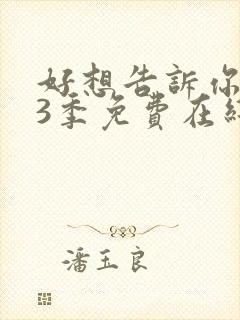 好想告訴你
3季免費在
潘玉良